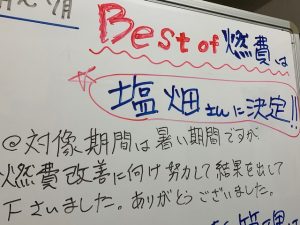 Best of 燃費は
塩畑さんに決定!!
@対像期間は暑い期間ですが
燃費改善に向け努力して結果を出して
下さいました。ありがとうございました。